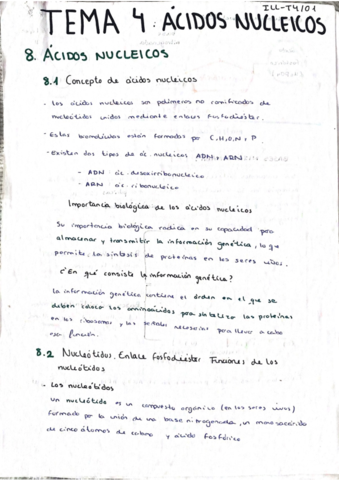 ILL-T4/01
TEMA 4: ÁCIDOS NUCLEICOS
8. ÁCIDOS NUCLEICOS
8.1 Concepto de ácidos nucleicos
- Los ácidos nucleicos son polímeros no ramificados de
nucleótidos unidos mediante enlaces fosfodiéster.
- Estas biomoléculas están formadas por C, H, O, N y P.
- Existen dos tipos de ác. nucleicos ADN y ARN
- ADN ác. desoxirribonucleico
- ARN ác. ribonucleico
Importancia biológica de los ácidos nucleicos
Su importancia biológica radica en su capacidad para
almacenar y transmitir la información genética, lo que
permite la síntesis de proteínas en los seres vivos.
¿En qué consiste la información genética?
La información genética contiene el orden en el que se
deben los aminoácidos para sintetizar las proteínas
en los ribosomas y las señales necesarias para llevar a cabo
esa función.
8.2 Nucleótidos. Enlace fosfodiéster. Funciones de los
nucleótidos
- Los nucleótidos
un nucleótido es un compuesto orgánico (en los seres vivos)
formado por la unión de una base nitrogenada, un monosacárido
de cinco átomos de carbono y ácido fosfórico